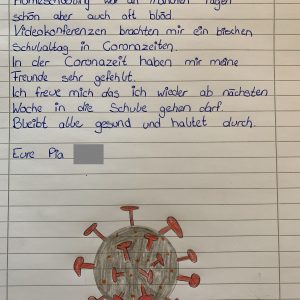 Homeschooling war an manchen Tagen
schön aber auch oft blöd.
Videokonferenzen brachten mir ein bischen
Schulalltag in Coronazeiten.
In der Coronazeit haben mir meine
Freunde sehr gefehlt.
Ich freue mich das ich wieder ab nächsten
Woche in die Schule gehen darf.
Bleibt alle gesund und haltet durch.
Eure Pia